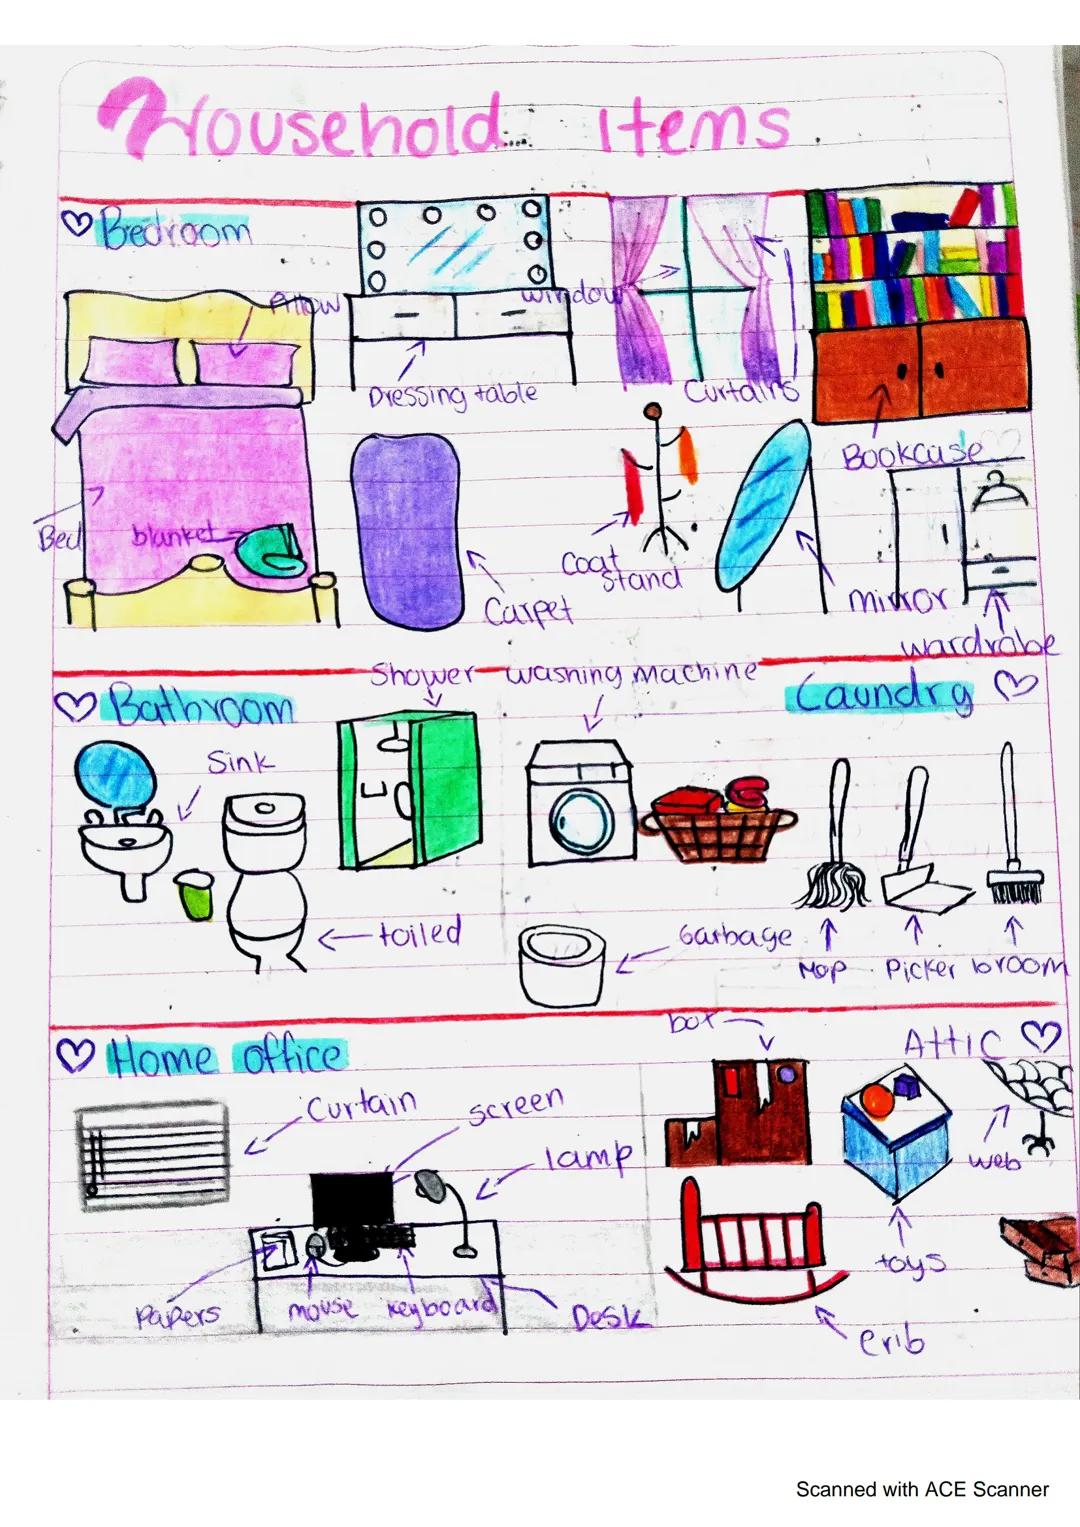 Household Items
Bedroom
Pillow
window
Dressing table
Curtains
Bookcase
Bed
blanket
Coat
stand
Carpet
mirror
wardrobe
Shower
washing machine
Bathroom
Laundry
Sink
toiled
Garbage
Mop
Picker
broom
box
Home office
Attic
Curtain
screen
lamp
web
toys
Papers
mouse
keyboard
Desk
crib
Scanned with ACE Scanner